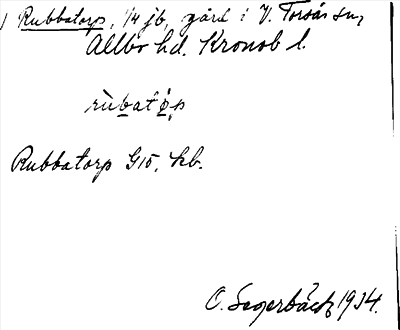 Rubbatorp, 1/4 jb, gård i V. Torsås sn,
Allbo hd. Kronob l.
rùbató̦p
Rubbatorp G15. kb.
O. Segerbäck 1934.